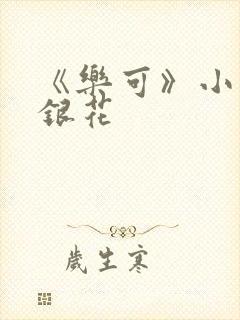 《樂可》小
銀花
歲生寒